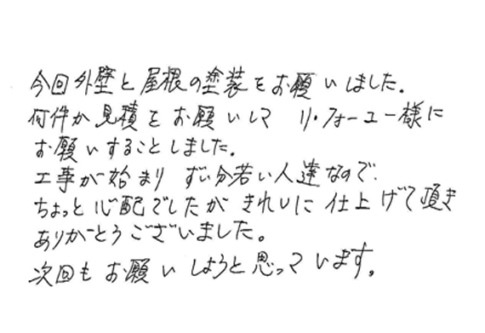 今回外壁と屋根の塗装をお願いしました。
何件か見積をお願いして リ・フォーユー様に
お願いすることしました。
工事が始まり ずい分若い人達なので、
ちょっと心配でしたが きれいに仕上げて頂き
ありがとうございました。
次回もお願いしようと思っています。